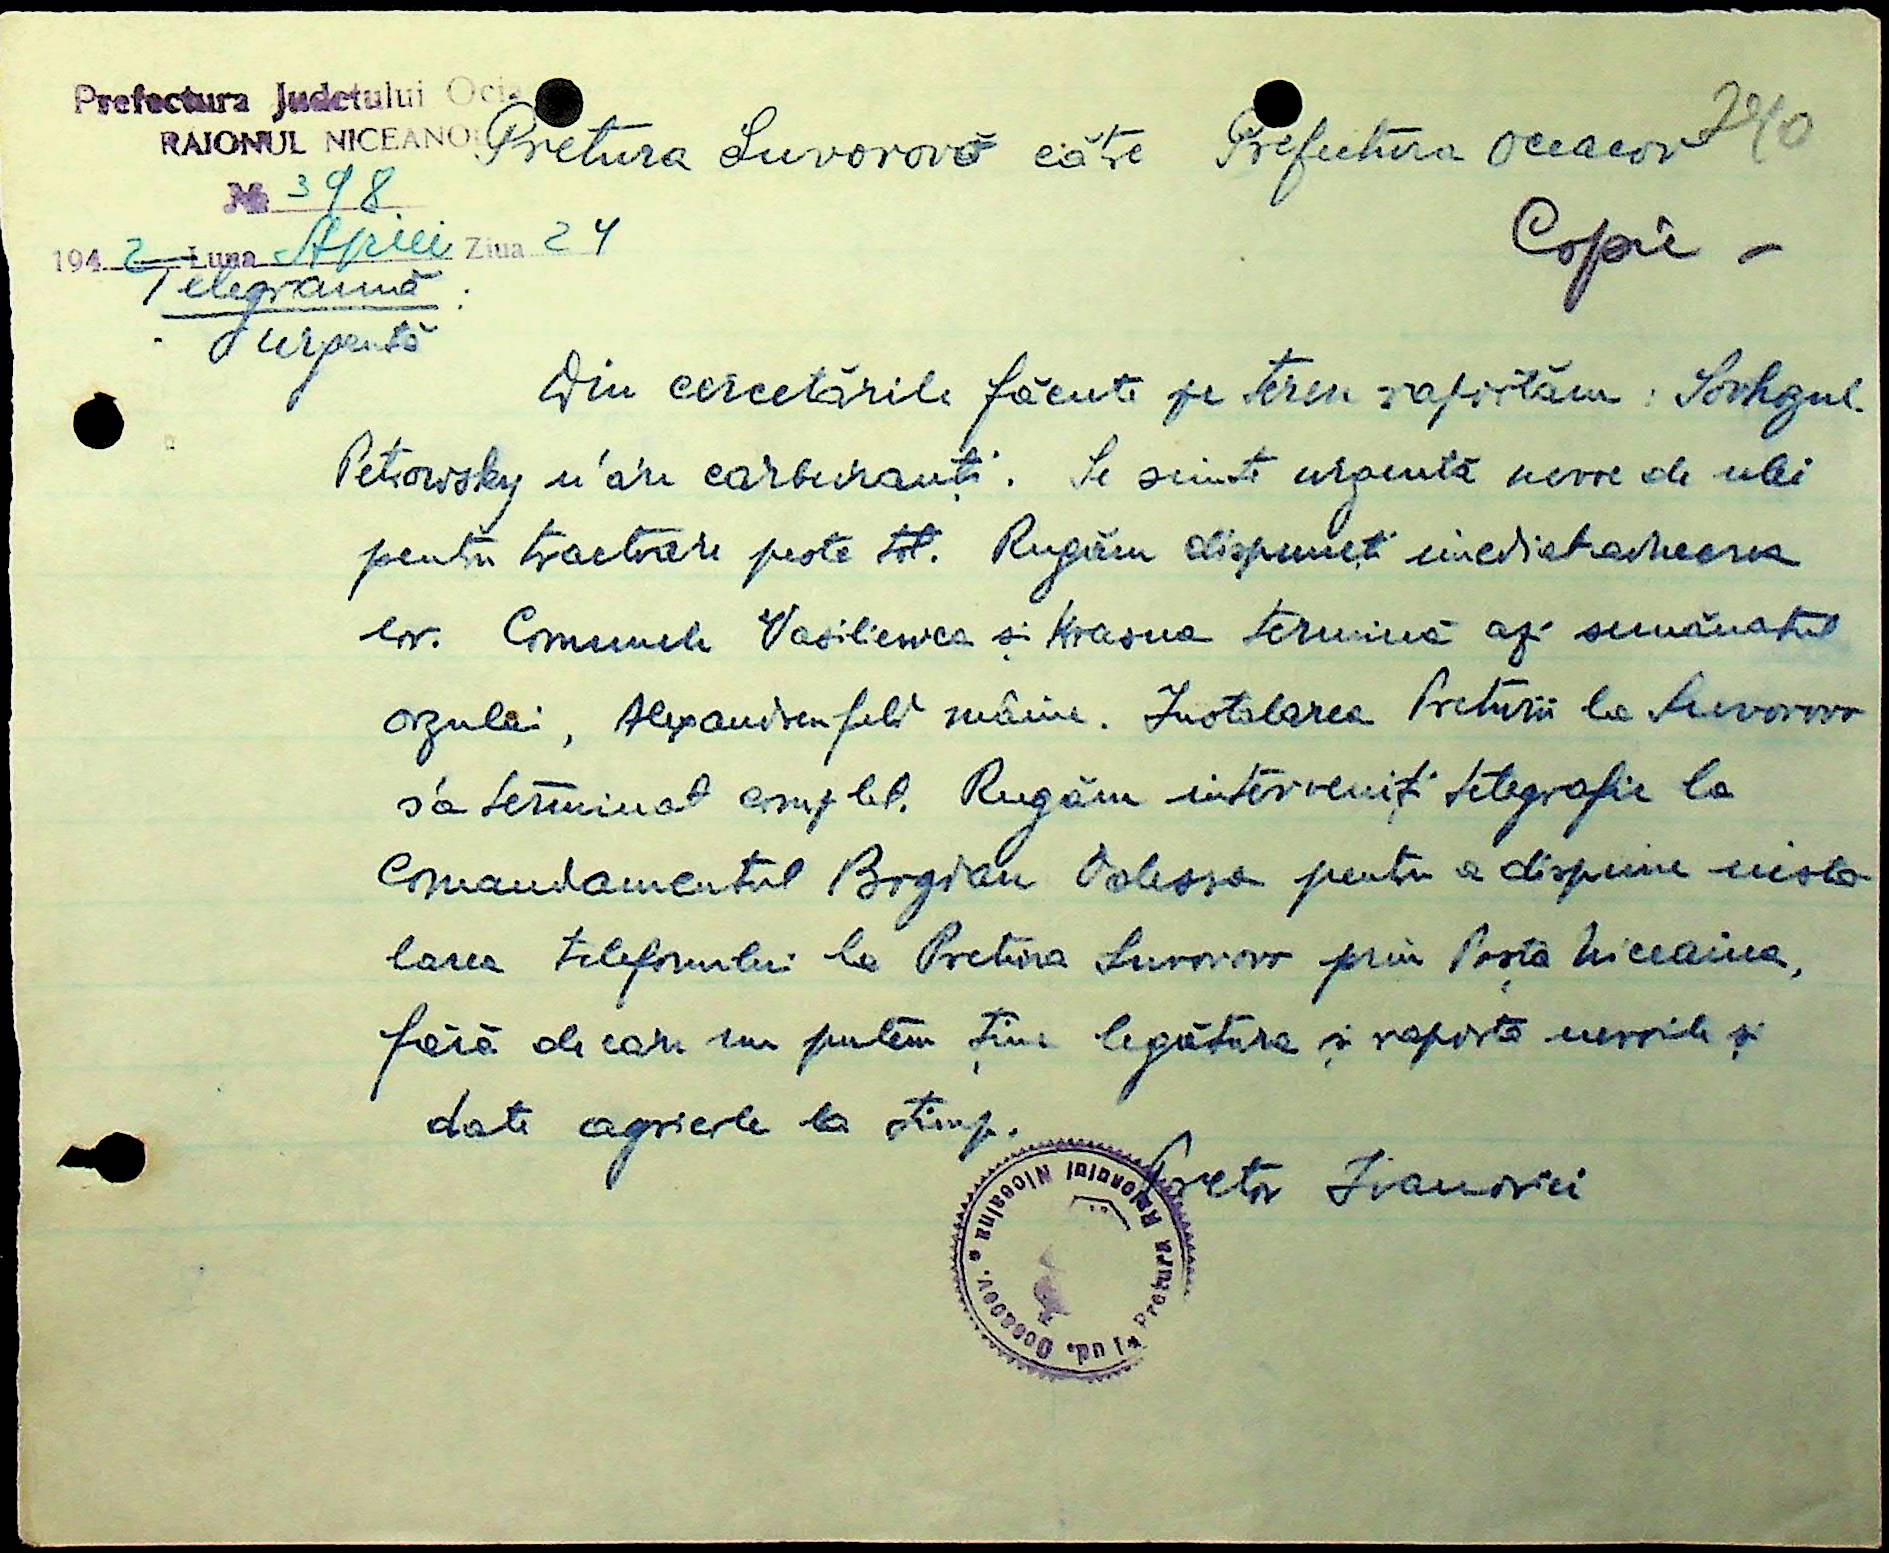 Prefectura Județului Ocia
RAIONUL NICEANO
№ 398
1942 Luna Aprilie Ziua 24
Pretura Suvorovo către Prefectura Oceacov
240
Copie -
Telegramă :
urgentă
Din cercetările făcute pe teren raportăm : Sovhozul
Petrowsky n'are carburanți. Se simte urgentă nevoe de ulei
pentru tractoare peste tot. Rugăm dispuneți imediat aducerea
lor. Comunele Vasiliewca și Krasna termină azi semănatul
orzului, Alexandrenfeld mâine. Instalarea Preturii la Suvorovo
s'a terminat complet. Rugăm interveniți telegrafic la
Comandamentul Bogdan Odessa pentru a dispune insta
larea telefonului la Pretura Suvorovo prin Poșta Niceaina,
fără de care nu putem ține legătura și raporta nevoile și
date agricole la timp.
Pretor Ivanovici
Jud. Oceacov. • Pretura Raionului Niceaina •